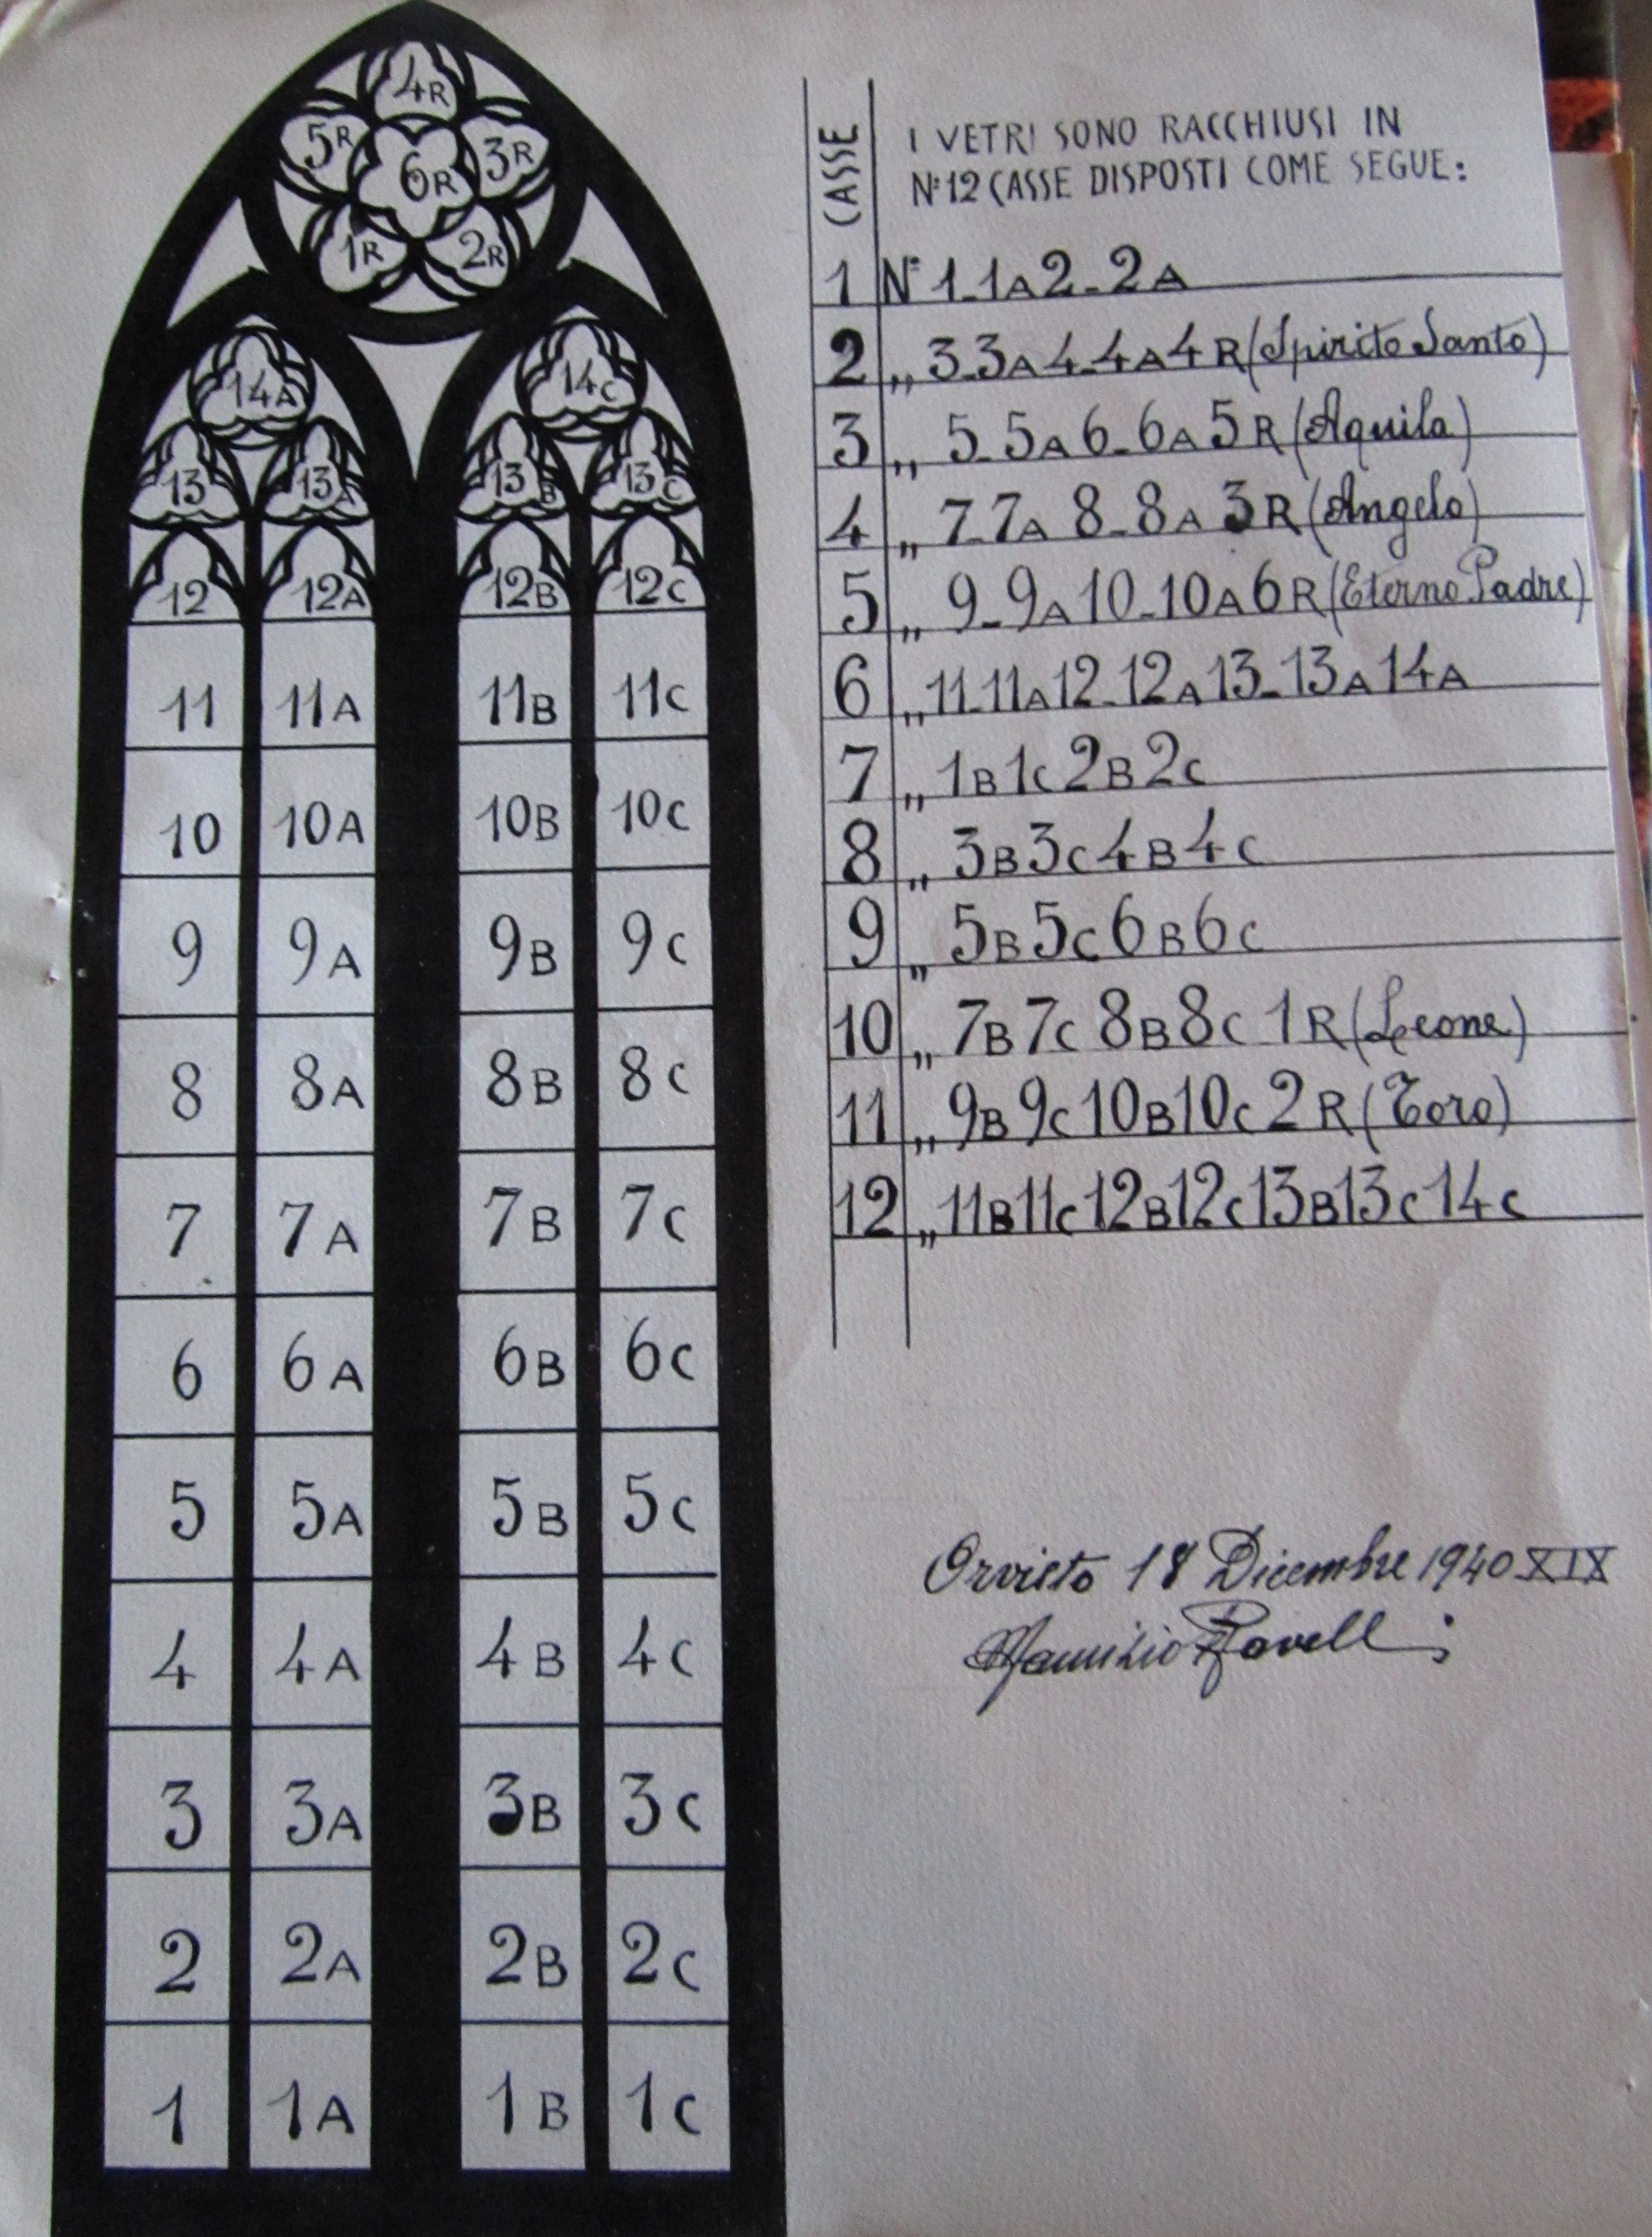 4R
5R 6R 3R
1R 2R
14A 14C
13 13A 13B 13C
12 12A 12B 12C
11 11A 11B 11C
10 10A 10B 10C
9 9A 9B 9C
8 8A 8B 8C
7 7A 7B 7C
6 6A 6B 6C
5 5A 5B 5C
4 4A 4B 4C
3 3A 3B 3C
2 2A 2B 2C
1 1A 1B 1C
CASSE
I VETRI SONO RACCHIUSI IN
N° 12 CASSE DISPOSTI COME SEGUE:
1 N° 1-1A 2-2A
2 „ 3-3A 4-4A 4R (Spirito Santo)
3 „ 5-5A 6-6A 5R (Aquila)
4 „ 7-7A 8-8A 3R (Angelo)
5 „ 9-9A 10-10A 6R (Eterno Padre)
6 „ 11-11A 12-12A 13-13A 14A
7 „ 1B 1C 2B 2C
8 „ 3B 3C 4B 4C
9 „ 5B 5C 6B 6C
10 „ 7B 7C 8B 8C 1R (Leone)
11 „ 9B 9C 10B 10C 2R (Toro)
12 „ 11B 11C 12B 12C 13B 13C 14C
Orvieto 18 Dicembre 1940 XIX
Maurizio Ravelli